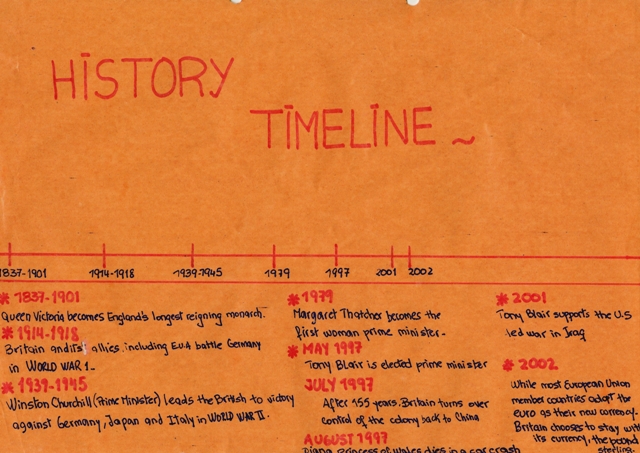 HISTORY
TIMELINE ~
1837-1901 1914-1918 1939-1945 1979 1997 2001 2002
* 1837-1901
Queen Victoria becomes England's longest reigning monarch.
* 1914-1918
Britain and its allies. including EUA battle Germany
in WORLD WAR 1_
* 1939-1945
Winston Churchill (Prime Minister) leads the British to victory
against Germany, Japan and Italy in WORLD WAR II.
* 1979
Margaret Thatcher becomes the
first woman prime minister-
* MAY 1997
Tony Blair is elected prime minister
JULY 1997
After 155 years. Britain turns over
control of the colony back to China
AUGUST 1997
Diana Princess of Wales dies in a car crash
* 2001
Tony Blair supports the U.S
led war in Iraq
* 2002
While most European Union
member countries adopt the
euro as their new currency.
Britain chooses to stay with
its currency, the pound
sterling.